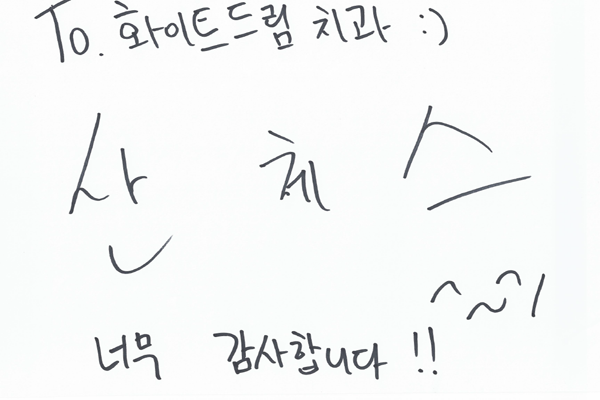 To. 화이트드림 치과 :)
산 체 스
^~^/
너무 감사합니다 !!